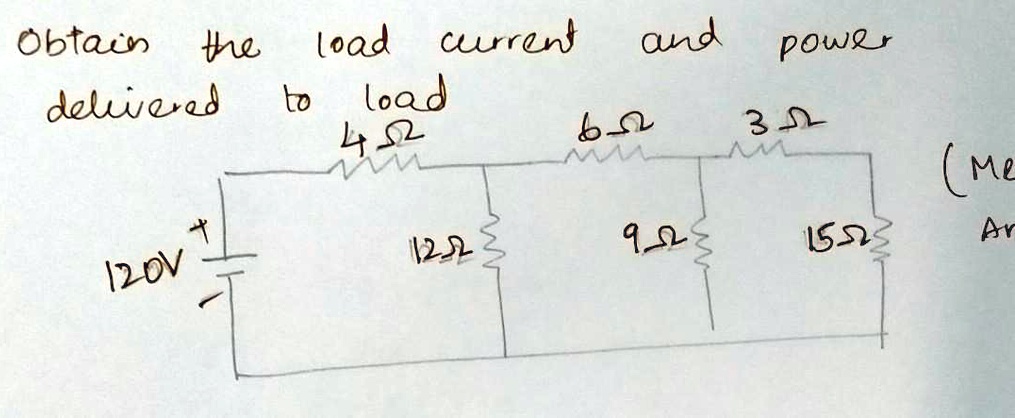 Obtain the load current and power
delivered to load
4Ω 6Ω 3Ω
(Me
120V + - 12Ω 9Ω 15Ω
Ar